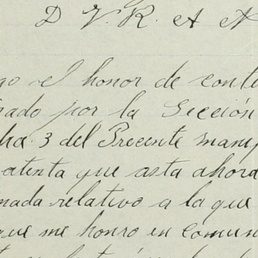 D V. R. A A
go el honor de conte
rado por la Sección
cha 3 del Precente mani
atenta que asta ahora
nada relativo a la que
que me honro en comun